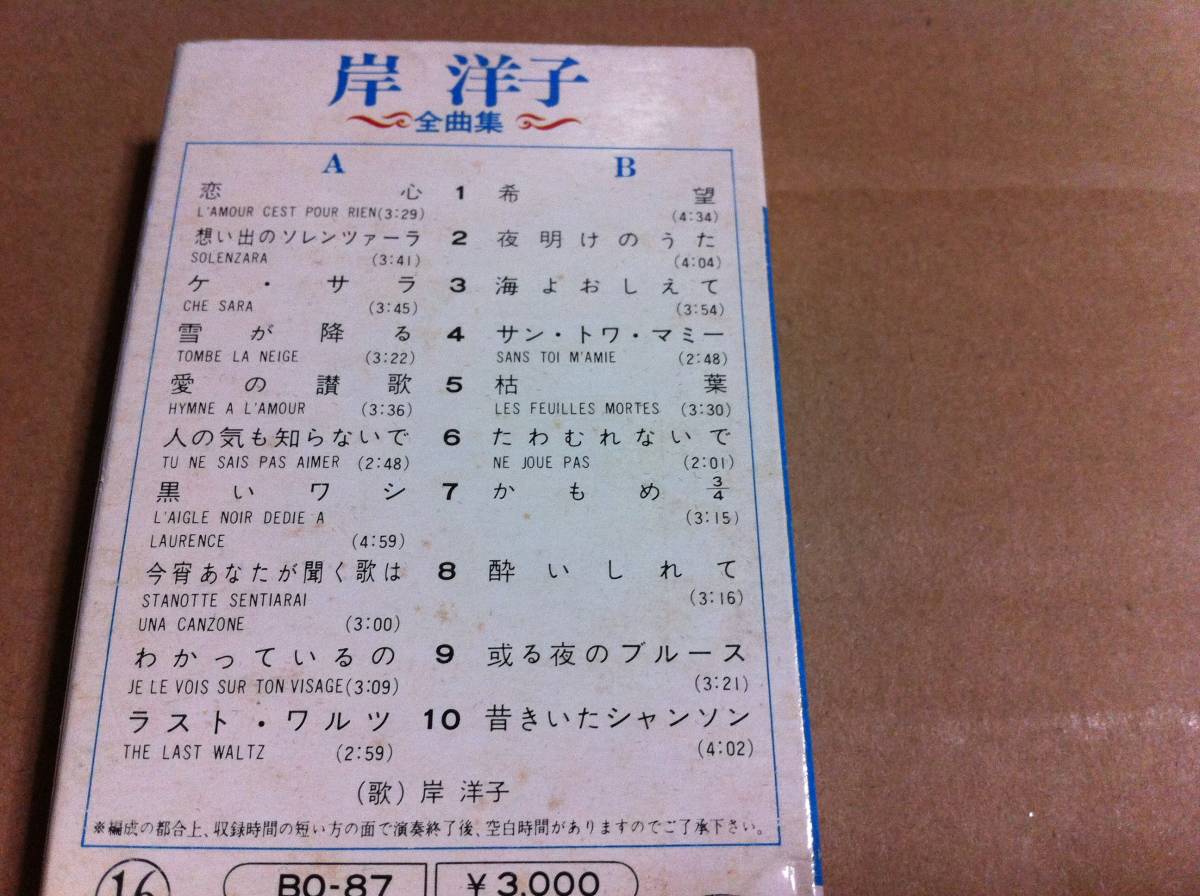 岸 洋子
全曲集
A B
恋心 1 希望
L'AMOUR CEST POUR RIEN(3:29) (4:34)
想い出のソレンツァーラ 2 夜明けのうた
SOLENZARA (3:41) (4:04)
ケ・サラ 3 海よおしえて
CHE SARA (3:45) (3:54)
雪が降る 4 サン・トワ・マミー
TOMBE LA NEIGE (3:22) SANS TOI M'AMIE (2:48)
愛の讃歌 5 枯葉
HYMNE A L'AMOUR (3:36) LES FEUILLES MORTES (3:30)
人の気も知らないで 6 たわむれないで
TU NE SAIS PAS AIMER (2:48) NE JOUE PAS (2:01)
黒いワシ 7 かもめ 3/4
L'AIGLE NOIR DEDIE A (3:15)
LAURENCE (4:59)
今宵あなたが聞く歌は 8 酔いしれて
STANOTTE SENTIARAI (3:16)
UNA CANZONE (3:00)
わかっているの 9 或る夜のブルース
JE LE VOIS SUR TON VISAGE(3:09) (3:21)
ラスト・ワルツ 10 昔きいたシャンソン
THE LAST WALTZ (2:59) (4:02)
(歌) 岸 洋子
※編成の都合上、収録時間の短い方の面で演奏終了後、空白時間がありますのでご了承下さい。
16 BO-87 ¥3,000